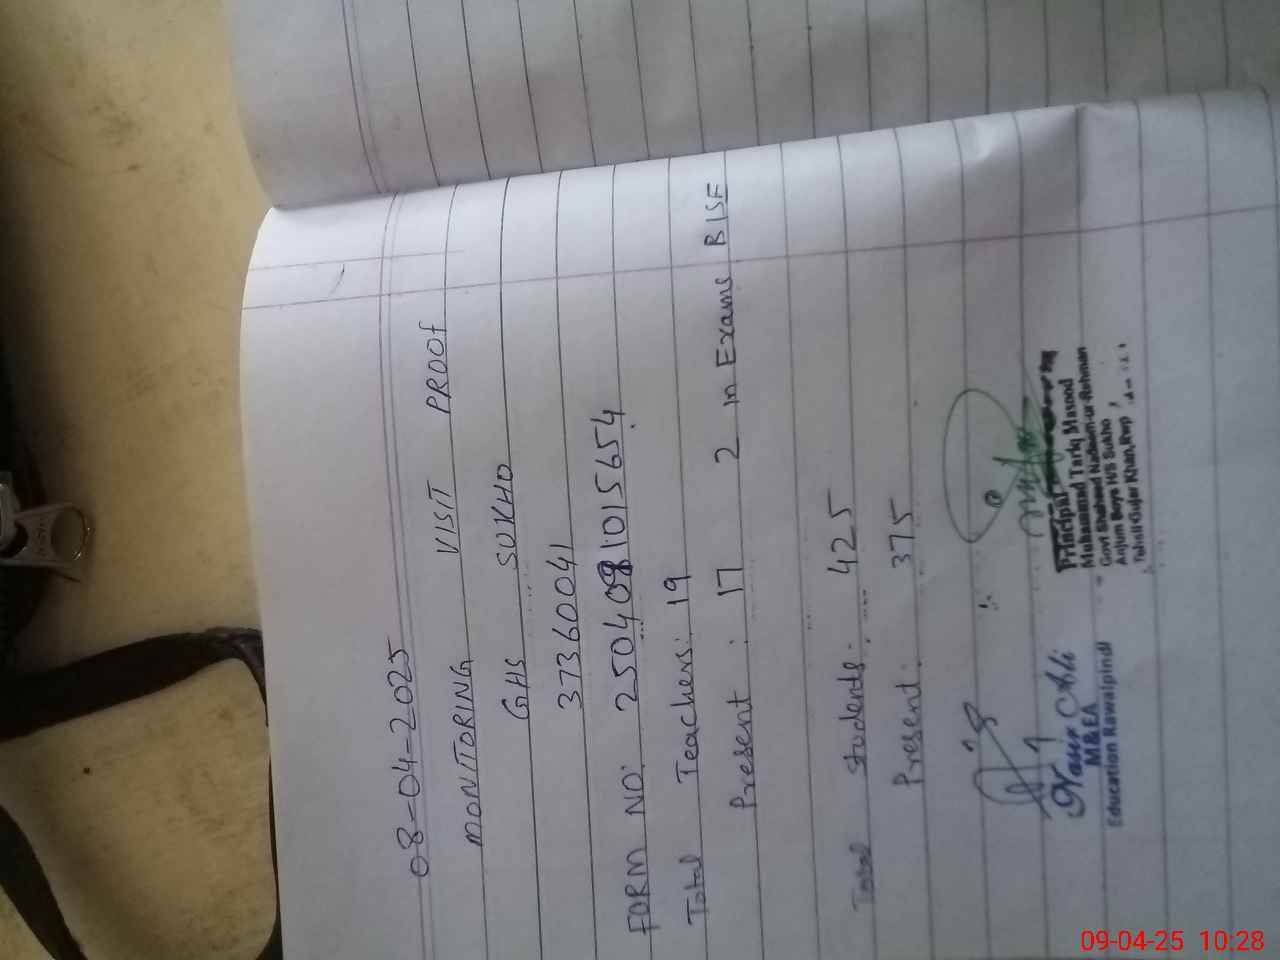 08-04-2025
MONITORING VISIT PROOF
GHS SUKHO
37360041
FORM NO: 2504081015654
Total Teachers: 19
Present: 17 2 in Exams BISE
Total Students: 425
Present: 375
Nasir Ali
M&EA
Education Rawalpindi
Principal
Muhammad Tariq Masood
Govt Shaheed Nadeem-ur-Rehman
Anjum Boys H/S Sukho
Tehsil Gujar Khan, Rwp
09-04-25 10:28